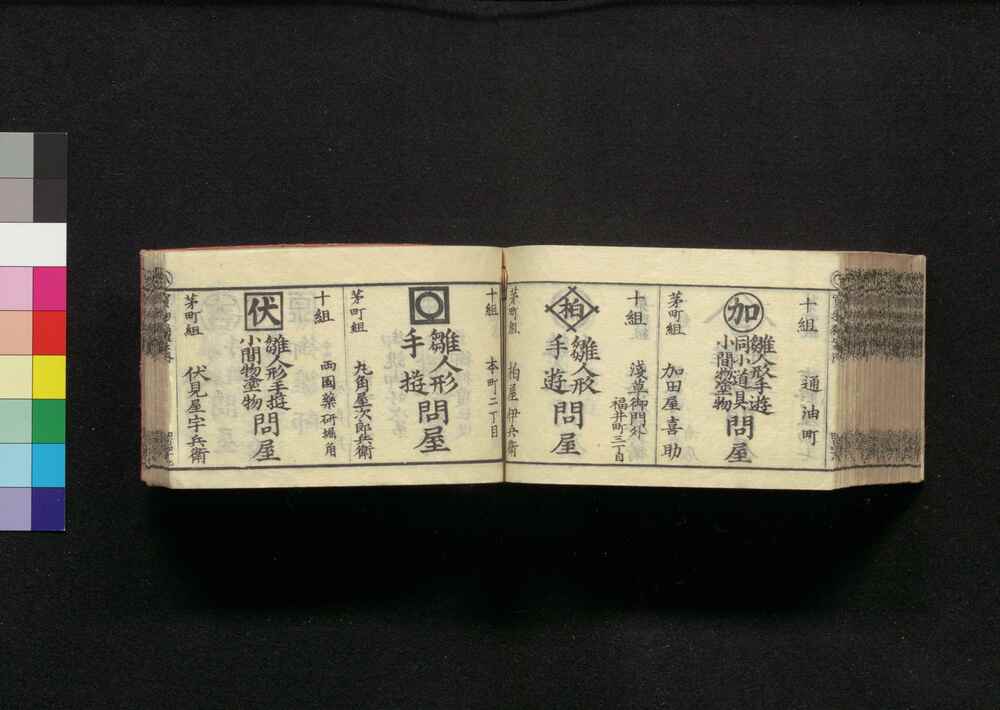 十組
通油町
加
雛人形手遊
同小道具
小間物塗物
問屋
茅町組
加田屋喜助
十組
浅草御門外
福井町三丁目
柏
雛人形
手遊
問屋
茅町組
柏屋伊兵衛
十組
本町二丁目
雛人形
手遊
問屋
茅町組
丸角屋次郎兵衛
十組
両国薬研堀角
伏
雛人形手遊
小間物塗物
問屋
茅町組
伏見屋宇兵衛